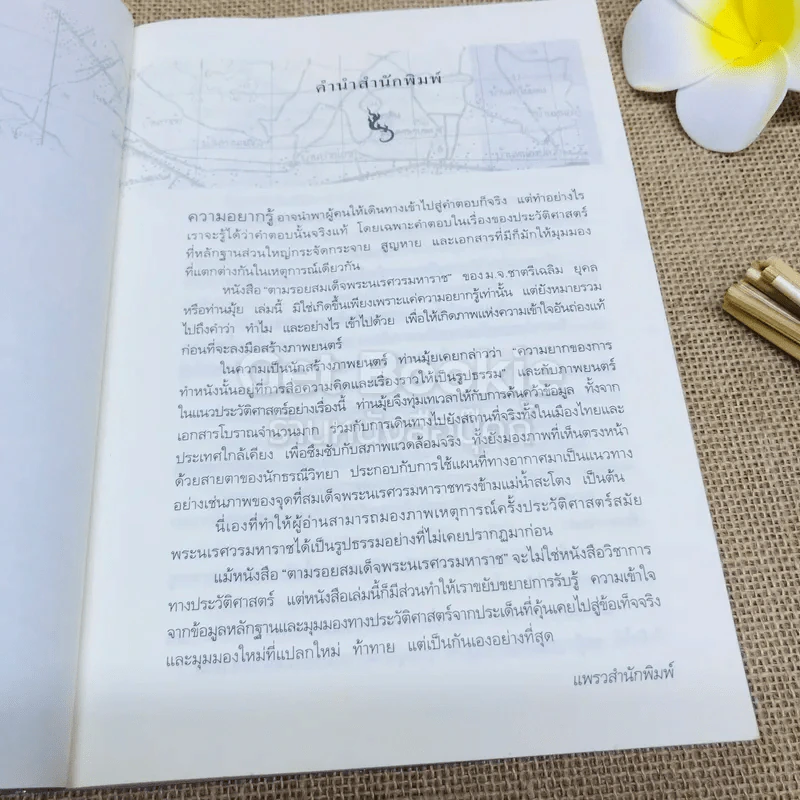 คำนำสำนักพิมพ์
ความอยากรู้ อาจนำพาผู้คนให้เดินทางเข้าไปสู่คำตอบก็จริง แต่ทำอย่างไร
เราจะรู้ได้ว่าคำตอบนั้นจริงแท้ โดยเฉพาะคำตอบในเรื่องของประวัติศาสตร์
ที่หลักฐานส่วนใหญ่กระจัดกระจาย สูญหาย และเอกสารที่มีก็มักให้มุมมอง
ที่แตกต่างกันในเหตุการณ์เดียวกัน
หนังสือ “ตามรอยสมเด็จพระนเรศวรมหาราช” ของ ม.จ.ชาตรีเฉลิม ยุคล
หรือท่านมุ้ย เล่มนี้ มิใช่เกิดขึ้นเพียงเพราะแค่ความอยากรู้เท่านั้น แต่ยังหมายรวม
ไปถึงคำว่า ทำไม และอย่างไร เข้าไปด้วย เพื่อให้เกิดภาพแห่งความเข้าใจอันถ่องแท้
ก่อนที่จะลงมือสร้างภาพยนตร์
ในความเป็นนักสร้างภาพยนตร์ ท่านมุ้ยเคยกล่าวว่า “ความยากของการ
ทำหนังนั้นอยู่ที่การสื่อความคิดและเรื่องราวให้เป็นรูปธรรม” และกับภาพยนตร์
ในแนวประวัติศาสตร์อย่างเรื่องนี้ ท่านมุ้ยจึงทุ่มเทเวลาให้กับการค้นคว้าข้อมูล ทั้งจาก
เอกสารโบราณจำนวนมาก ร่วมกับการเดินทางไปยังสถานที่จริงทั้งในเมืองไทยและ
ประเทศใกล้เคียง เพื่อซึมซับกับสภาพแวดล้อมจริง ทั้งยังมองภาพที่เห็นตรงหน้า
ด้วยสายตาของนักธรณีวิทยา ประกอบกับการใช้แผนที่ทางอากาศมาเป็นแนวทาง
อย่างเช่นภาพของจุดที่สมเด็จพระนเรศวรมหาราชทรงข้ามแม่น้ำสะโตง เป็นต้น
นี่เองที่ทำให้ผู้อ่านสามารถมองภาพเหตุการณ์ครั้งประวัติศาสตร์สมัย
พระนเรศวรมหาราชได้เป็นรูปธรรมอย่างที่ไม่เคยปรากฏมาก่อน
แม้หนังสือ “ตามรอยสมเด็จพระนเรศวรมหาราช” จะไม่ใช่หนังสือวิชาการ
ทางประวัติศาสตร์ แต่หนังสือเล่มนี้ก็มีส่วนทำให้เราขยับขยายการรับรู้ ความเข้าใจ
จากข้อมูลหลักฐานและมุมมองทางประวัติศาสตร์จากประเด็นที่คุ้นเคยไปสู่ข้อเท็จจริง
และมุมมองใหม่ที่แปลกใหม่ ท้าทาย แต่เป็นกันเองอย่างที่สุด
แพรวสำนักพิมพ์